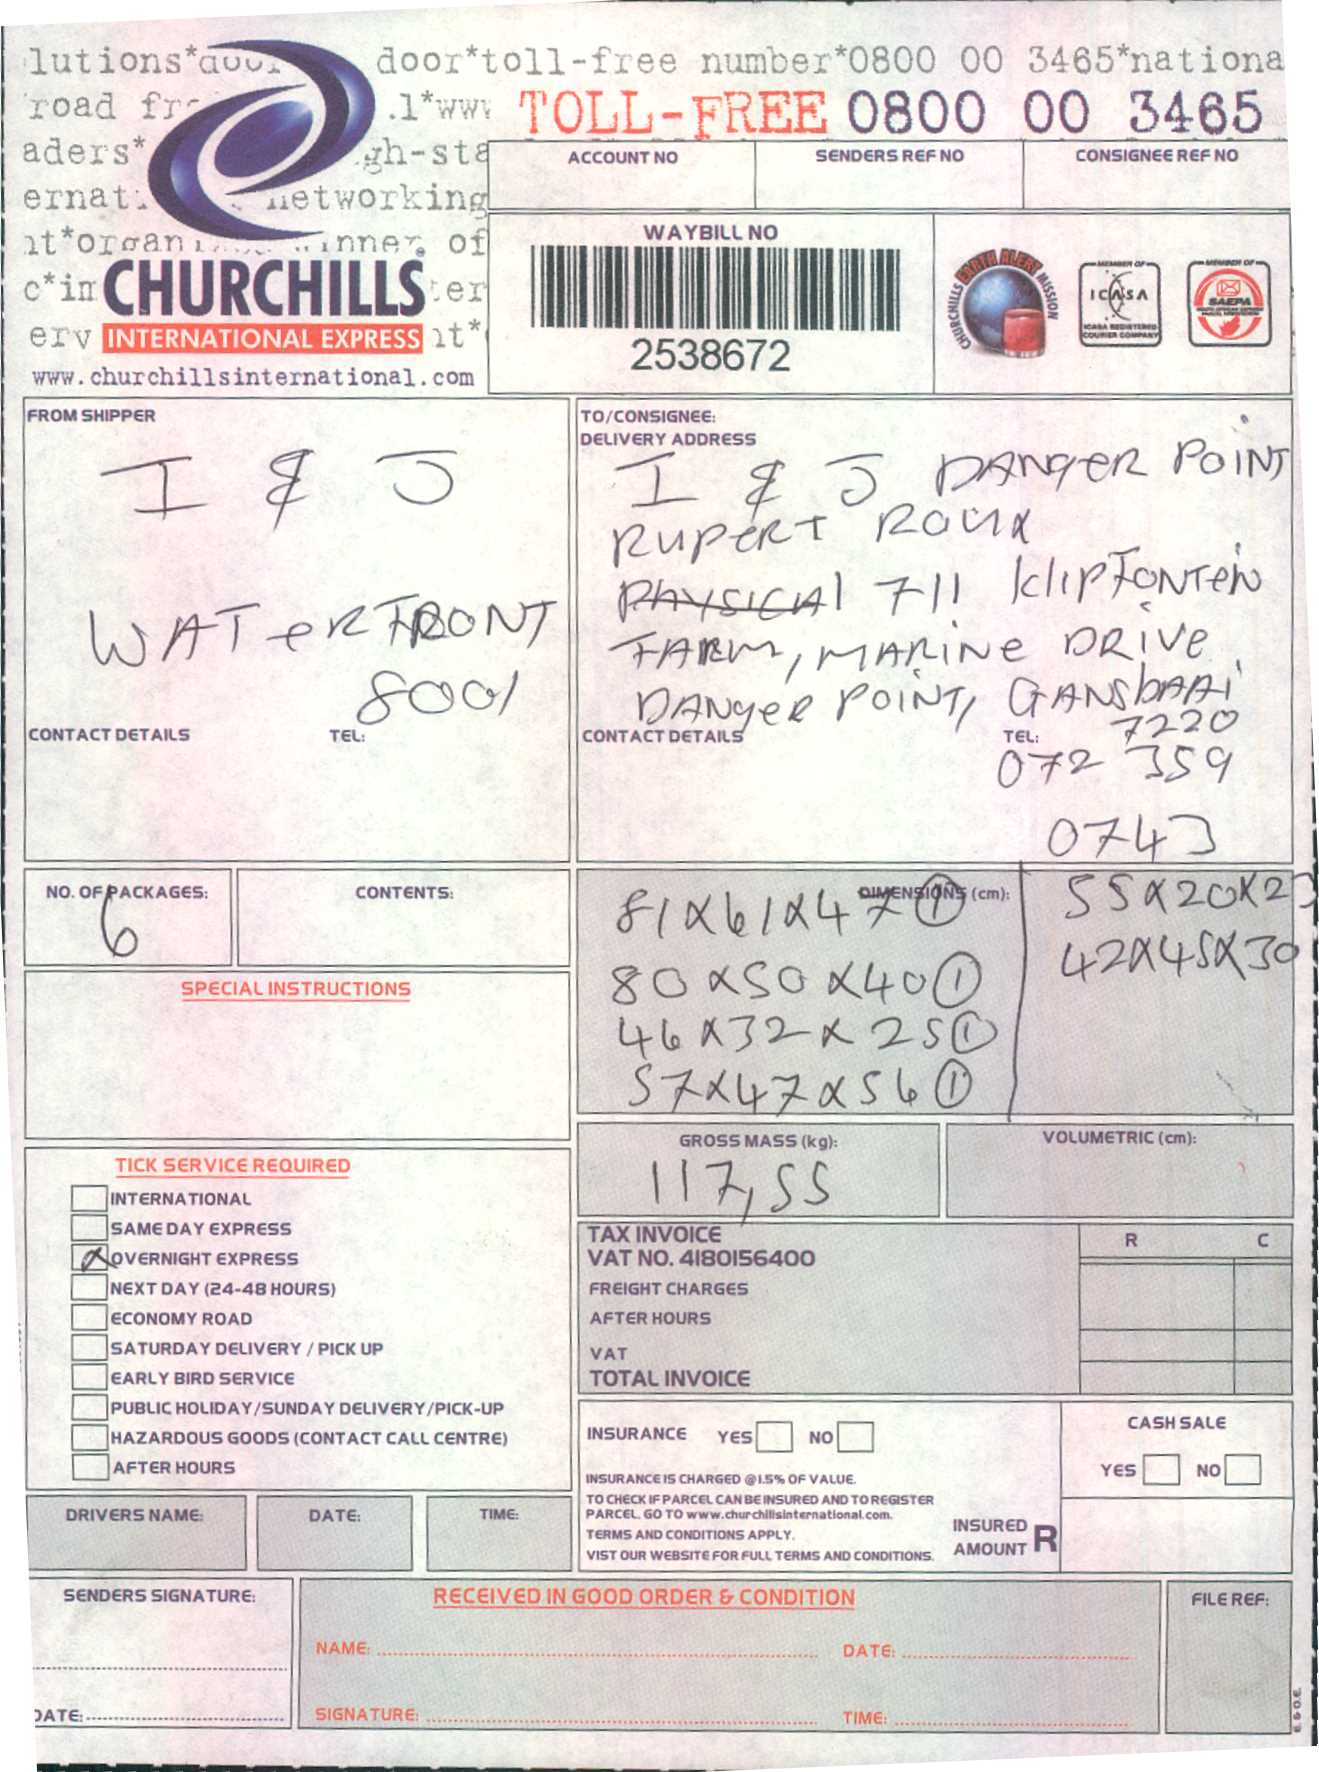 lutions*door door*toll-free number*0800 00 3465*nationa
road fr .l*www TOLL-FREE 0800 00 3465
aders* gh-sta
ernat networking
nt*organi winner of
c*in ter
erv nt*
CHURCHILLS
INTERNATIONAL EXPRESS
www.churchillsinternational.com
ACCOUNT NO SENDERS REF NO CONSIGNEE REF NO
WAYBILL NO
2538672
CHURCHILLS EARTH ALERT MISSION
MEMBER OF
ICASA
ICASA REGISTERED
COURIER COMPANY
MEMBER OF
SAEPA
FROM SHIPPER
I & J
WATERFRONT
8001
CONTACT DETAILS TEL:
TO/CONSIGNEE:
DELIVERY ADDRESS
I & J DANGER POINT
RUPERT ROUX
PHYSICAl 711 KlipFONTEiN
FARM, MARINE DRIVE
DANGER POINT, GANSbAAi
7220
CONTACT DETAILS TEL:
072 359
0743
NO. OF PACKAGES: CONTENTS:
6
DIMENSIONS (cm):
81x61x47 1
80x50x40 1
46x32x25 1
57x47x56 1
55x20x23
42x45x30
SPECIAL INSTRUCTIONS
GROSS MASS (kg): VOLUMETRIC (cm):
117,55
TICK SERVICE REQUIRED
INTERNATIONAL
SAME DAY EXPRESS
x OVERNIGHT EXPRESS
NEXT DAY (24-48 HOURS)
ECONOMY ROAD
SATURDAY DELIVERY / PICK UP
EARLY BIRD SERVICE
PUBLIC HOLIDAY/SUNDAY DELIVERY/PICK-UP
HAZARDOUS GOODS (CONTACT CALL CENTRE)
AFTER HOURS
TAX INVOICE R C
VAT NO. 4180156400
FREIGHT CHARGES
AFTER HOURS
VAT
TOTAL INVOICE
INSURANCE YES NO
INSURANCE IS CHARGED @1.5% OF VALUE.
TO CHECK IF PARCEL CAN BE INSURED AND TO REGISTER
PARCEL. GO TO www.churchillsinternational.com.
TERMS AND CONDITIONS APPLY.
VIST OUR WEBSITE FOR FULL TERMS AND CONDITIONS.
INSURED
AMOUNT R
CASH SALE
YES NO
DRIVERS NAME: DATE: TIME:
SENDERS SIGNATURE:
DATE:
RECEIVED IN GOOD ORDER & CONDITION
NAME: DATE:
SIGNATURE: TIME:
FILE REF:
E. & O.E.